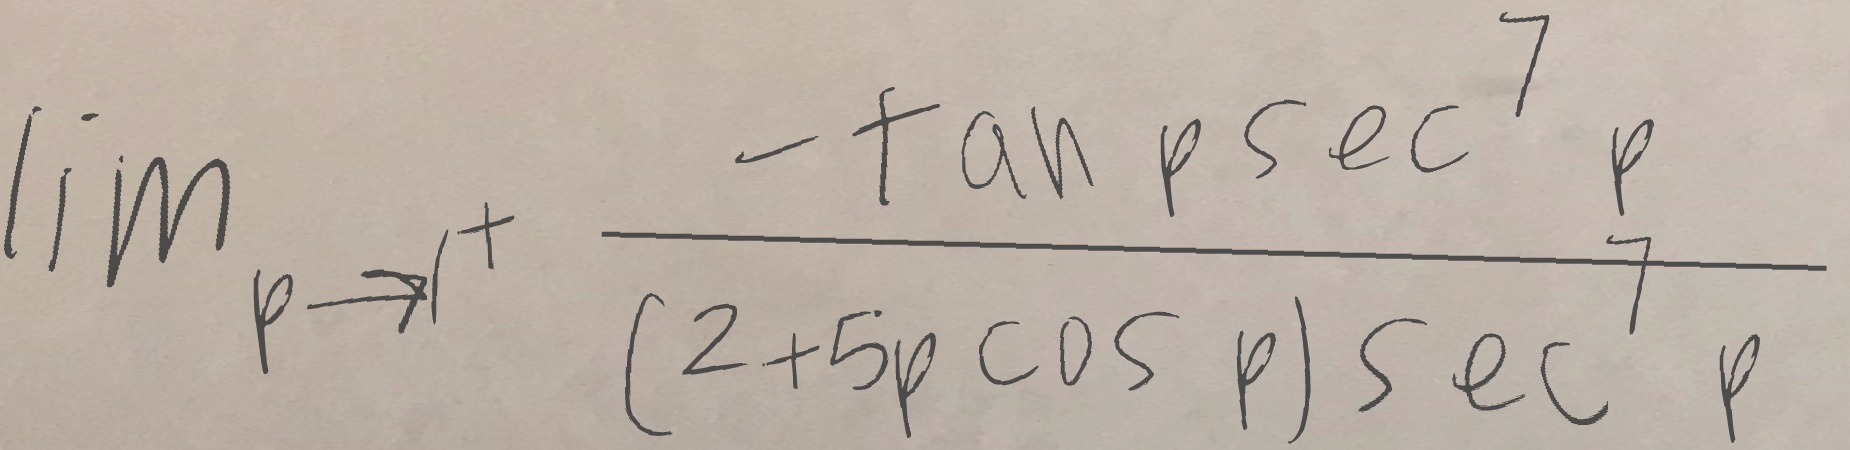 \lim_{p \to 1^+} \frac{-\tan p \sec^7 p}{(2+5p \cos p) \sec^7 p}